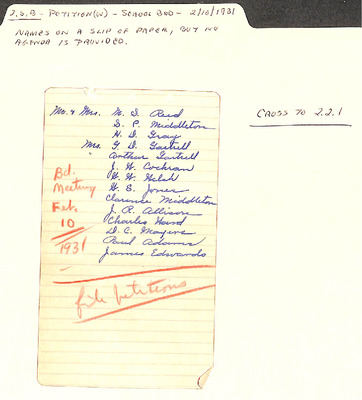 2.S.B - PETITION(W) - SCHOOL BRD - 2/10/1931
NAMES ON A SLIP OF PAPER, BUT NO
AGENDA IS PROVIDED.
CROSS TO 2.2.1
Mr. & Mrs. M. D. Reed
S. P. Middleton
H. D. Gray
Mrs. G. D. Gartrell
" Arthur Gartrell
J. W. Cochran
W. W.
W. S. Jones
Clarence Middleton
J. R. Allison
Charles
D. C. Mayers
Paul Adams
James Edwards
Bd.
Meeting
Feb.
10
1931
file petitions